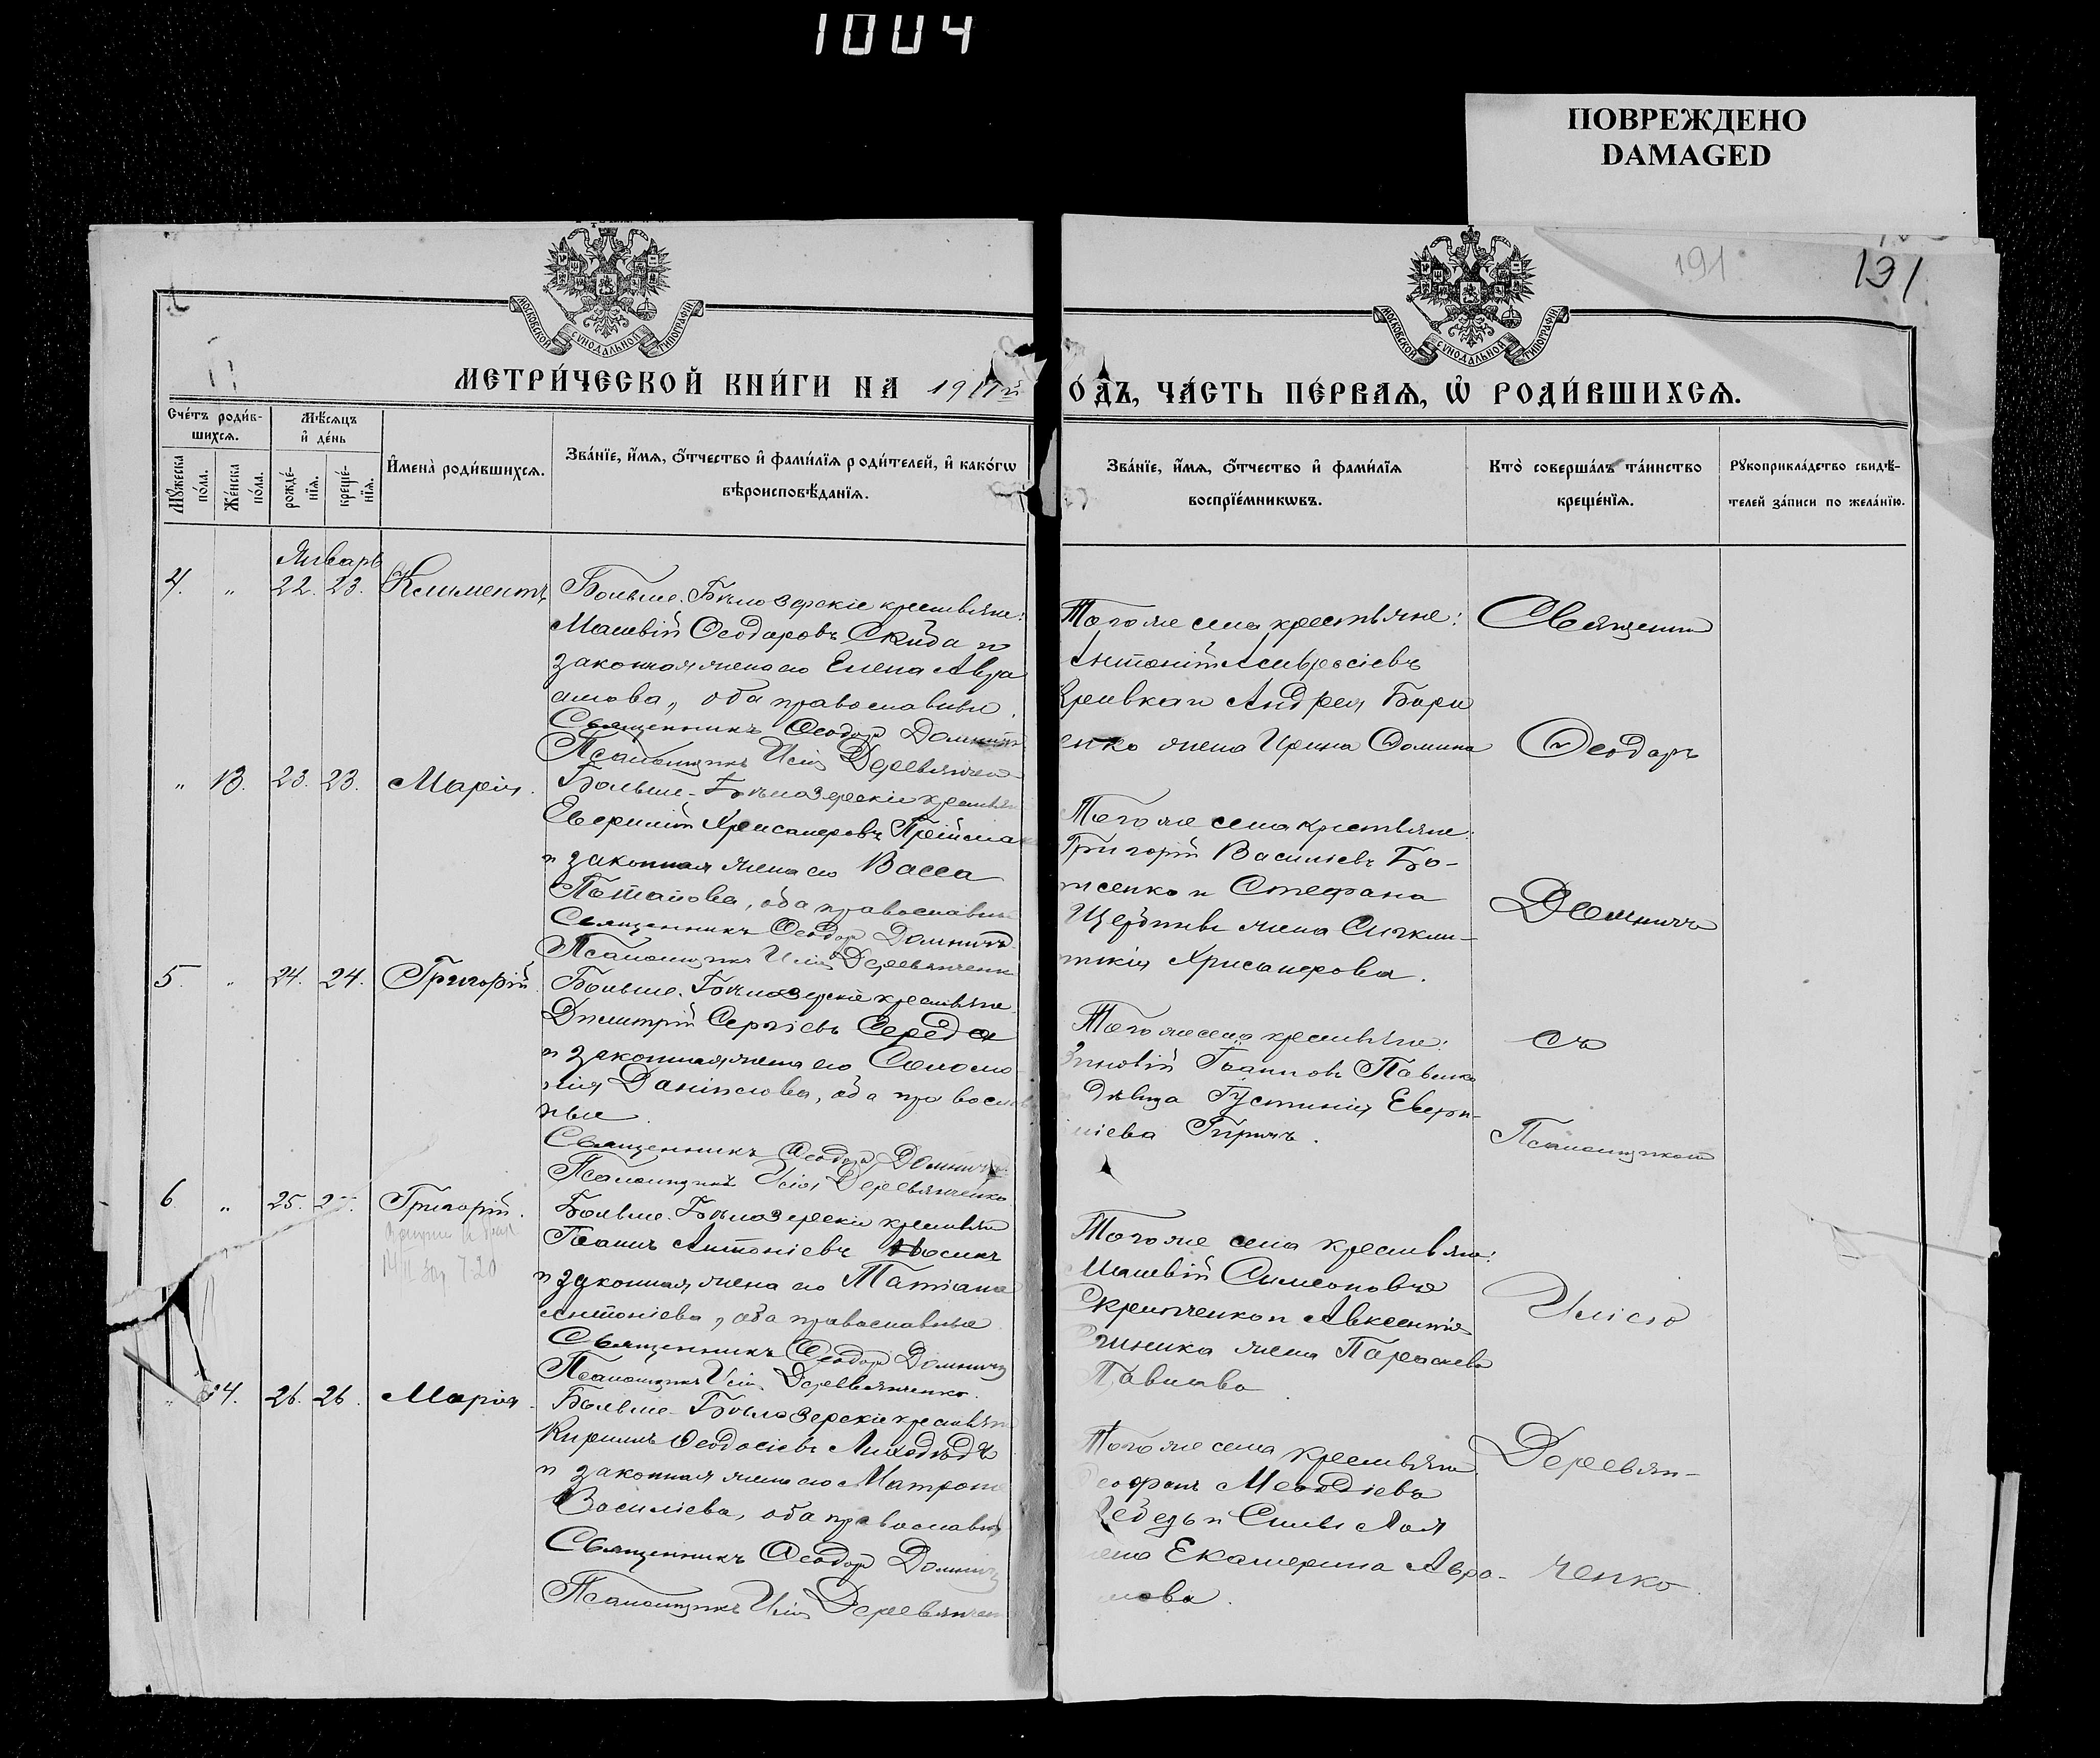 1004
ПОВРЕЖДЕНО
DAMAGED
191
191
МОСКОВСКОЙ СѴНОДАЛЬНОЙ ТИПОГРАФІИ
МОСКОВСКОЙ СѴНОДАЛЬНОЙ ТИПОГРАФІИ
МЕТРИ́ЧЕСКОЙ КНИ́ГИ НА 1917й
О́ДЪ, ЧА́СТЬ ПЕ́РВАѦ, Ѡ҆ РОДИ́ВШИХСѦ.
Сче́тъ роди́в-
шихсѧ.
Мѣ́сѧцъ
и҆ де́нь
Мꙋ́жеска по́ла.
Же́нска по́ла.
рожде́-
нїѧ.
креще́-
нїѧ.
И҆мена̀ роди́вшихсѧ.
Зва́нїе, и҆́мѧ, ѻ҆́тчество и҆ фами́лїѧ роди́телей, и҆ како́гѡ
вѣроисповѣ́данїѧ.
Зва́нїе, и҆́мѧ, ѻ҆́тчество и҆ фами́лїѧ
воспрїе́мникѡвъ.
Кто̀ соверша́лъ та́инство
креще́нїѧ.
Рꙋкоприкла́дство свидѣ́-
телей за́писи по жела́нїю.
Январь
4. „ 22. 23. Климентъ
Больше-Бѣлозерскіе крестьяне:
Матвій Ѳеодоровъ Скиба и
законная жена его Елена Авра
амова, оба православные.
Священникъ Ѳеодоръ Домничъ
Псаломщикъ Илія Деревянчен
Того же села крестьяне:
Антоній Амвросіевъ
и Андрея Бори
енко жена Ирина Ѳомина
Священни
Ѳеодоръ
„ 13. 23. 23. Марія.
Больше-Бѣлозерскіе крестьян
Евфимій Хрисанфовъ
и законная жена его Васса
Потапова, оба православные
Священникъ Ѳеодоръ Домничъ
Псаломщикъ Илія Деревянченк
Того же села крестьяне:
Григорій Василіевъ Бо-
женко и Стефана
жена Сигкли-
тикія Хрисанфова.
Домничъ
5. „ 24. 24. Григорій.
Больше-Бѣлозерскіе крестьяне
Димитрій Сергіевъ Середа
и законная жена его Соломо
нія Даніилова, оба православ
ные.
Священникъ Ѳеодоръ Домничъ
Псаломщикъ Илія Деревянченко
Того же села крестьяне:
Зиновій Іоанновъ Павлко
дѣвица Іустинія Евфи-
міева Гиричъ.
съ
Псаломщикомъ
6. „ 25. Григорій.
Больше-Бѣлозерскіе крестьян
Іоаннъ Антоніевъ Носикъ
и законная жена его Татіана
Антоніева, оба православные
Священникъ Ѳеодоръ Домничъ
Псаломщикъ Илія Деревянченко.
Того же села крестьяне:
Матвій Симеоновъ
Скрипченко и Авксентія
жена Параскева
Павлова
Иліею
„ 14. 26. 26. Марія
Больше-Бѣлозерскіе крестьян
Кириллъ Ѳеодосіевъ Лиходѣдъ
и законная жена его Матрона
Василіева, оба православные
Священникъ Ѳеодоръ Домничъ
Псаломщикъ Илія Деревянчен
Того же села крестьяне
Ѳеофанъ Меѳодіевъ
Лебедь и
жена Екатерина Авра-
мова.
Деревян-
ченко.